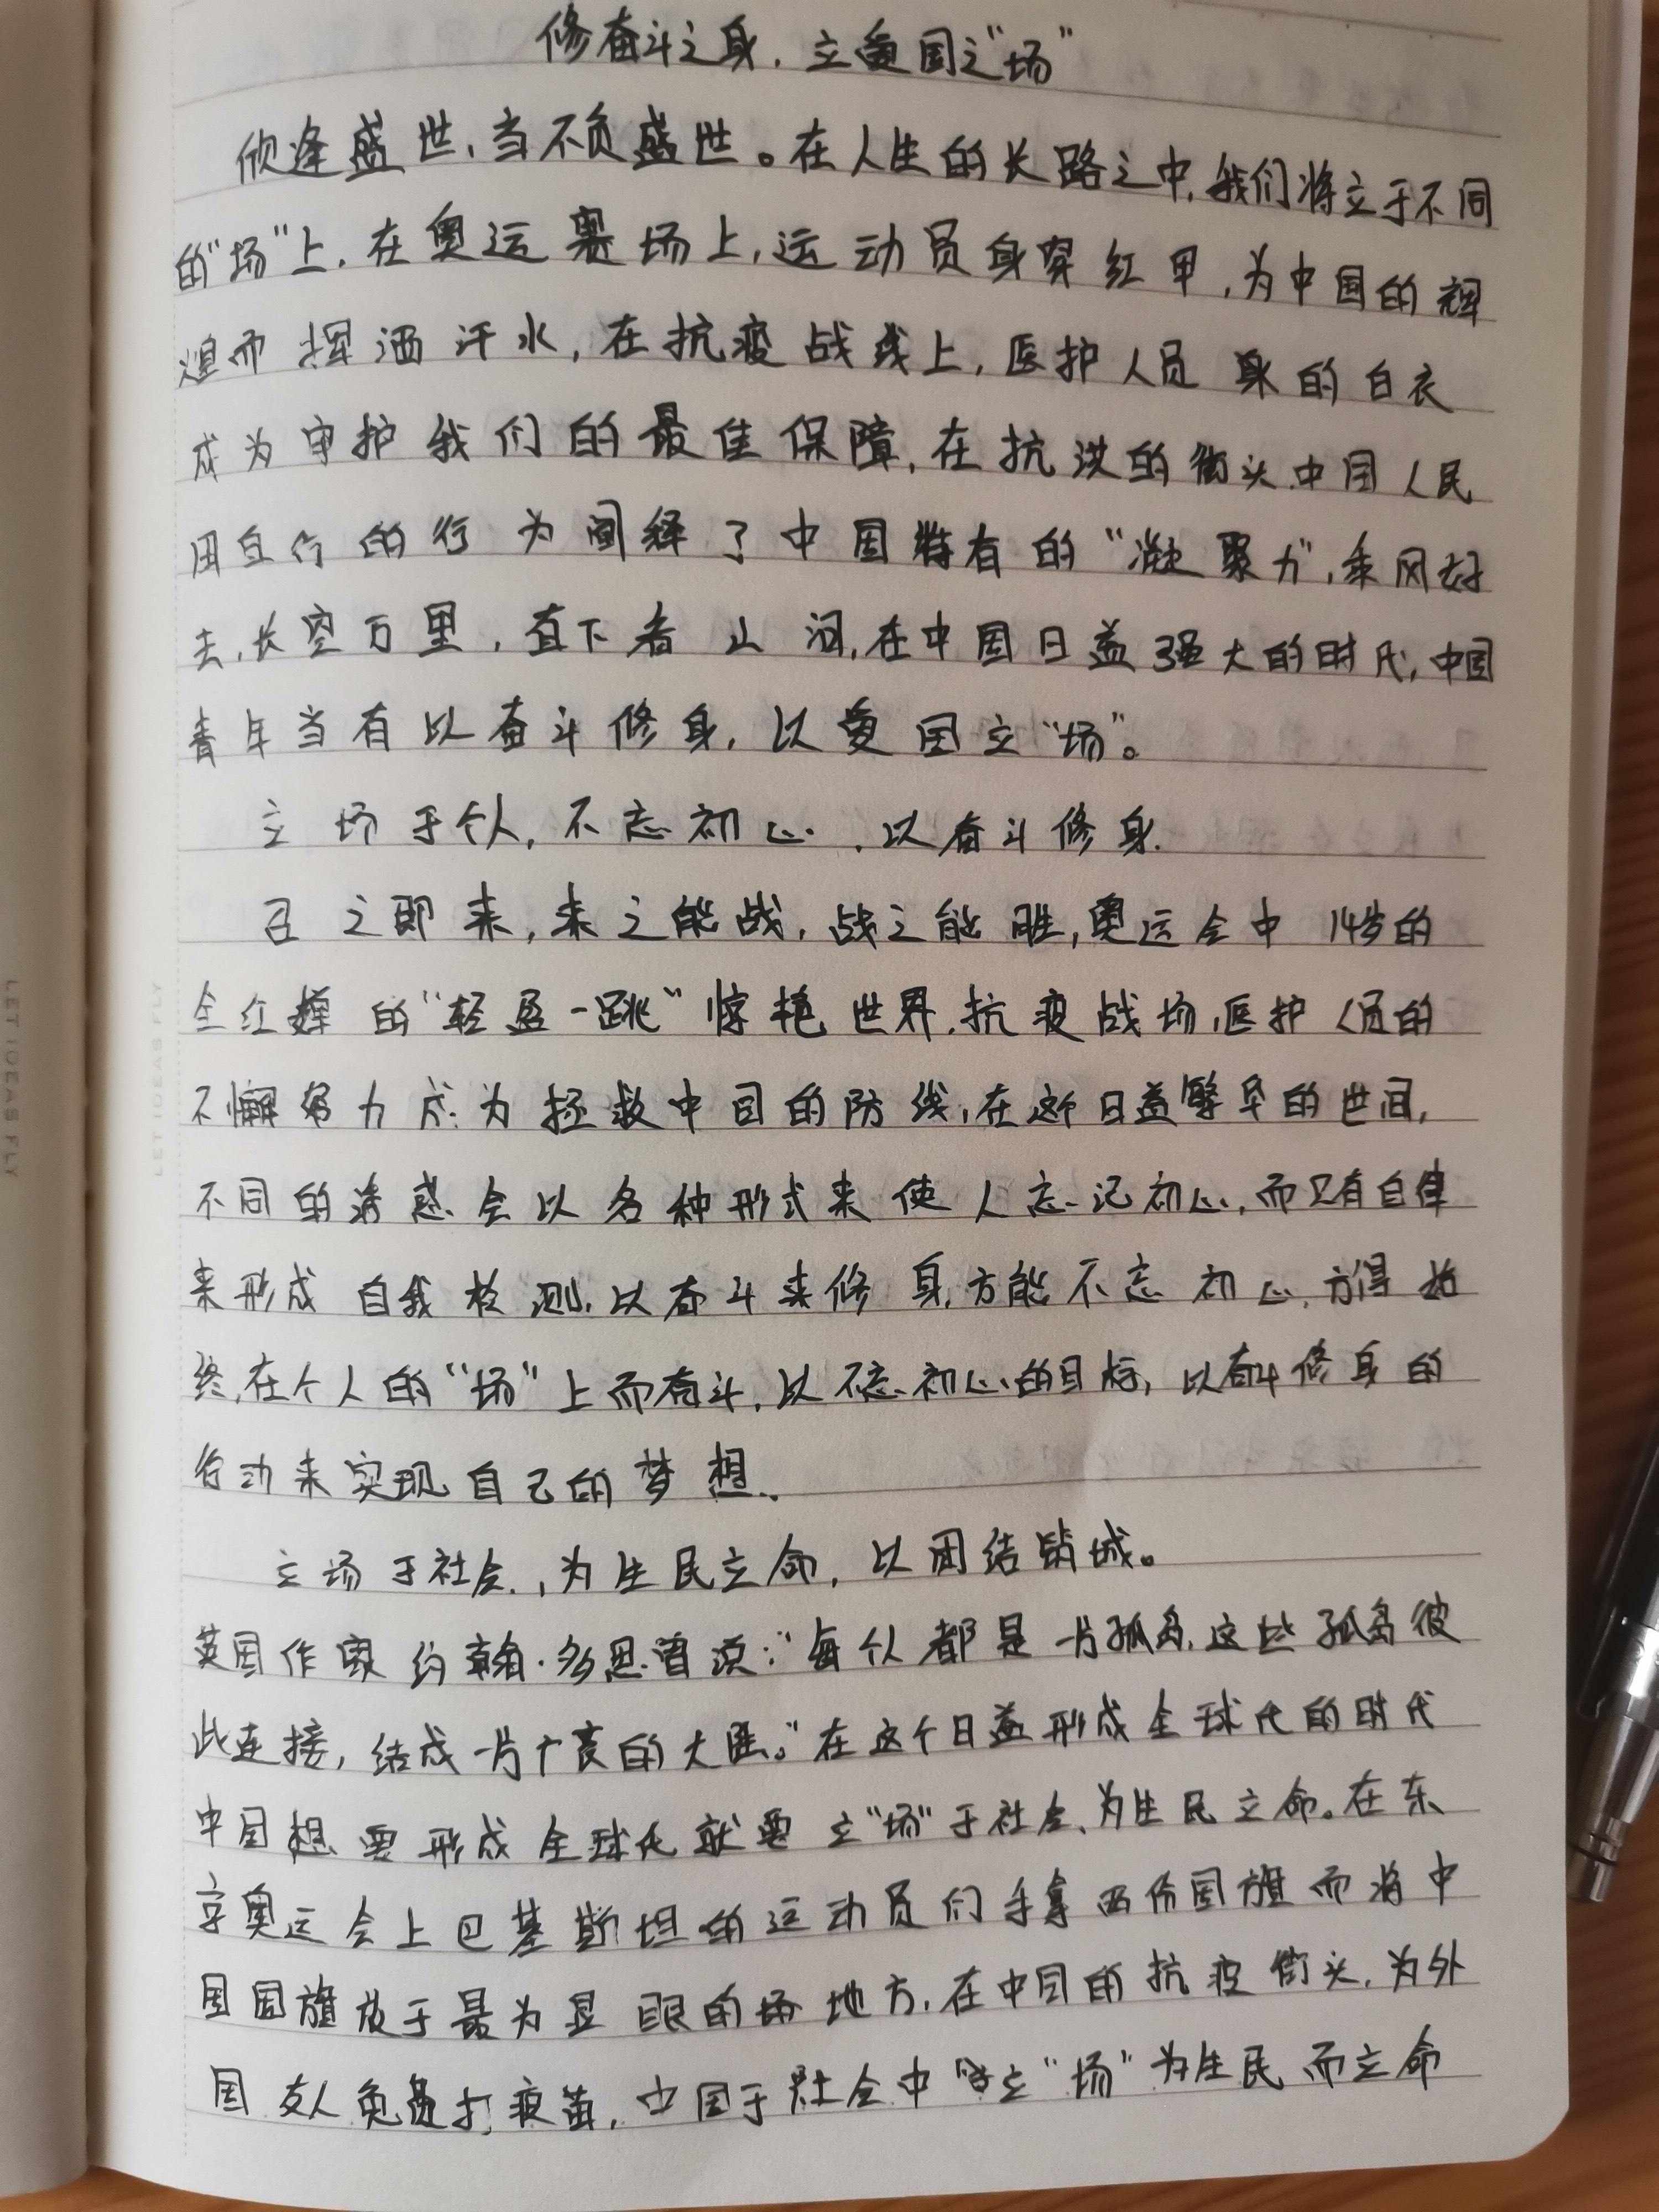 修奋斗之身，立爱国之“场”
欣逢盛世，当不负盛世。在人生的长路之中，我们将立于不同
的“场”上，在奥运赛场上，运动员身穿红甲，为中国的辉
煌而挥洒汗水，在抗疫战线上，医护人员身的白衣
成为守护我们的最佳保障，在抗洪的街头，中国人民
用自行的行为阐释了中国特有的“凝聚力”，乘风好
去，长空万里，直下看山河，在中国日益强大的时代，中国
青年当有以奋斗修身，以爱国立“场”。
立场于个人，不忘初心，以奋斗修身.
召之即来，来之能战，战之能胜，奥运会中14岁的
全红婵的“轻盈一跳”惊艳世界，抗疫战场，医护人员的
不懈努力成为拯救中国的防线，在这个日益繁华的世间，
不同的诱惑会以各种形式来使人忘记初心，而只有自律
来形成自我检测，以奋斗来修身，方能不忘初心，方得始
终，在个人的“场”上而奋斗，以不忘初心的目标，以奋斗修身的
行动来实现自己的梦想.
立场于社会，为生民立命，以团结铸城。
英国作家约翰·多恩曾说：“每个人都是一片孤岛，这些孤岛彼
此连接，结成一片广袤的大陆。”在这个日益形成全球化的时代
中国想要形成全球化就要立“场”于社会、为生民立命。在东
京奥运会上巴基斯坦的运动员们手拿两份国旗而将中
国国旗放于最为显眼的场地方，在中国的抗疫街头，为外
国友人免费打疫苗，中国于社会中立“场”为生民而立命
LET IDEAS FLY
LET IDEAS FLY